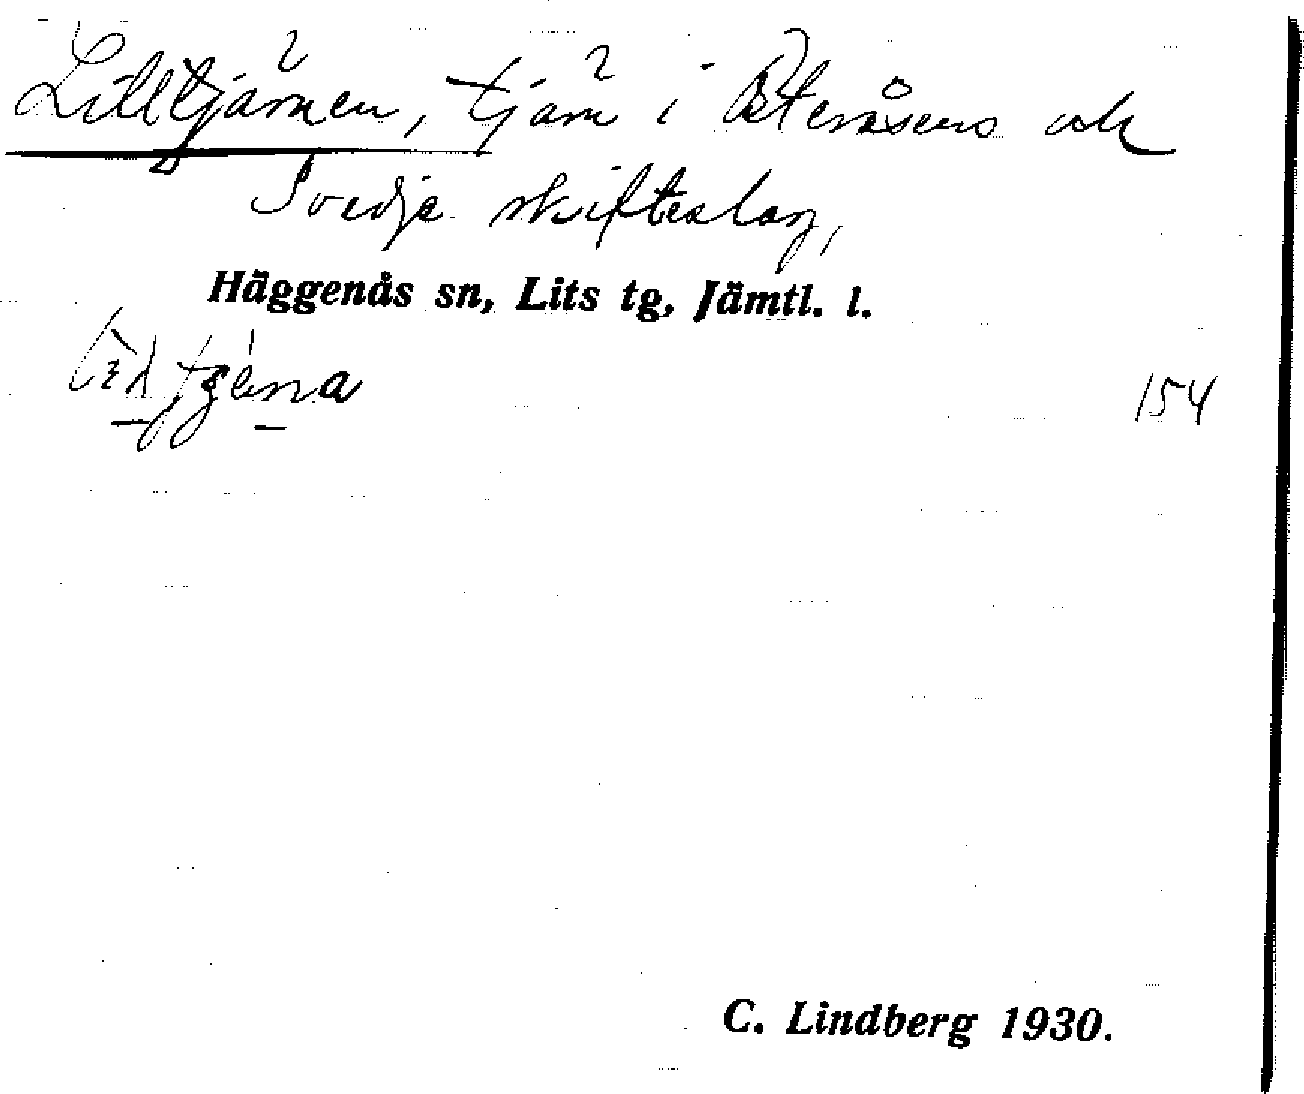 Lilltjärnen, tjärn i Österåsens och
Svedje skifteslag,
Häggenås sn, Lits tg, Jämtl. l.
154
C. Lindberg 1930.